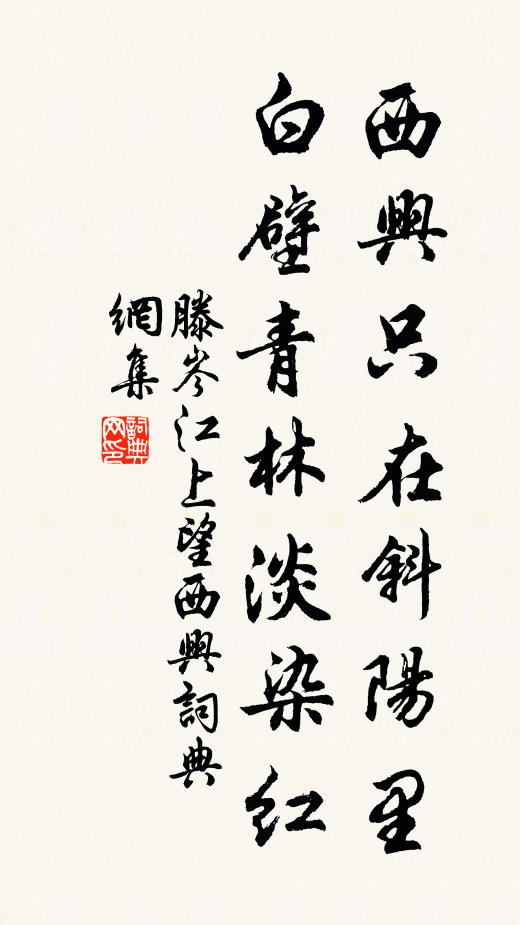 西興只在斜陽里
白壁青林淡染紅
滕岑江上望西興詞典
網集
詞典
网印